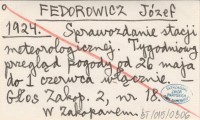 FEDOROWICZ Józef
1924. Sprawozdanie stacji
meteorologicznej. Tygodniowy
przegląd pogody od 26 maja
do 1 czerwca włącznie.
Głos Zakop. 2, nr 18.
W Zakopanem.